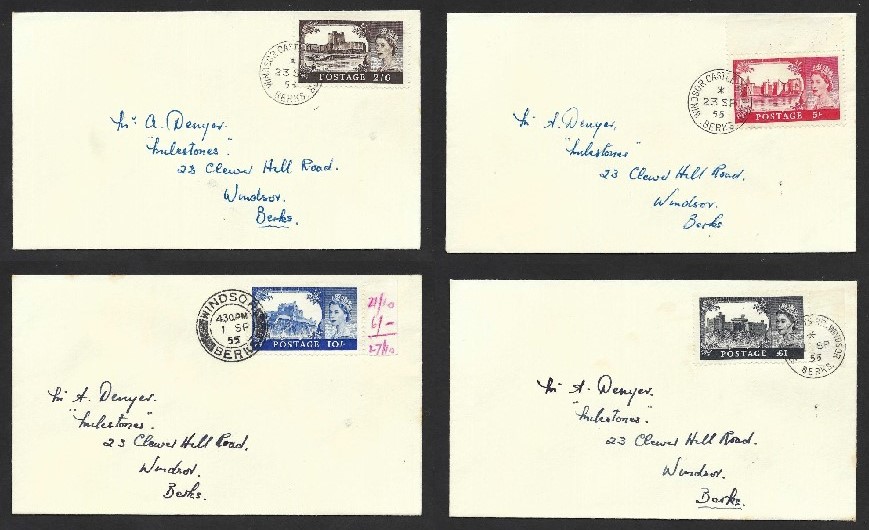 WINDSOR CASTLE
*
23 SP
55
BERKS.
POSTAGE 2/6
Mr A. Denyer.
"Milestones".
23 Clewer Hill Road.
Windsor.
Berks.
WINDSOR CASTLE
*
23 SP
55
BERKS.
POSTAGE 5/-
Mr A. Denyer,
"Milestones"
23 Clewer Hill Road.
Windsor.
Berks
WINDSOR
4 30 PM
1 SP
55
BERKS
POSTAGE 10/-
21/10
6/-
27/10
Mr A. Denyer.
"Milestones".
23 Clewer Hill Road,
Windsor.
Berks.
POSTAGE £1
WINDSOR
*
SP
55
BERKS.
Mr A. Denyer.
"Milestones".
23 Clewer Hill Road.
Windsor.
Berks.